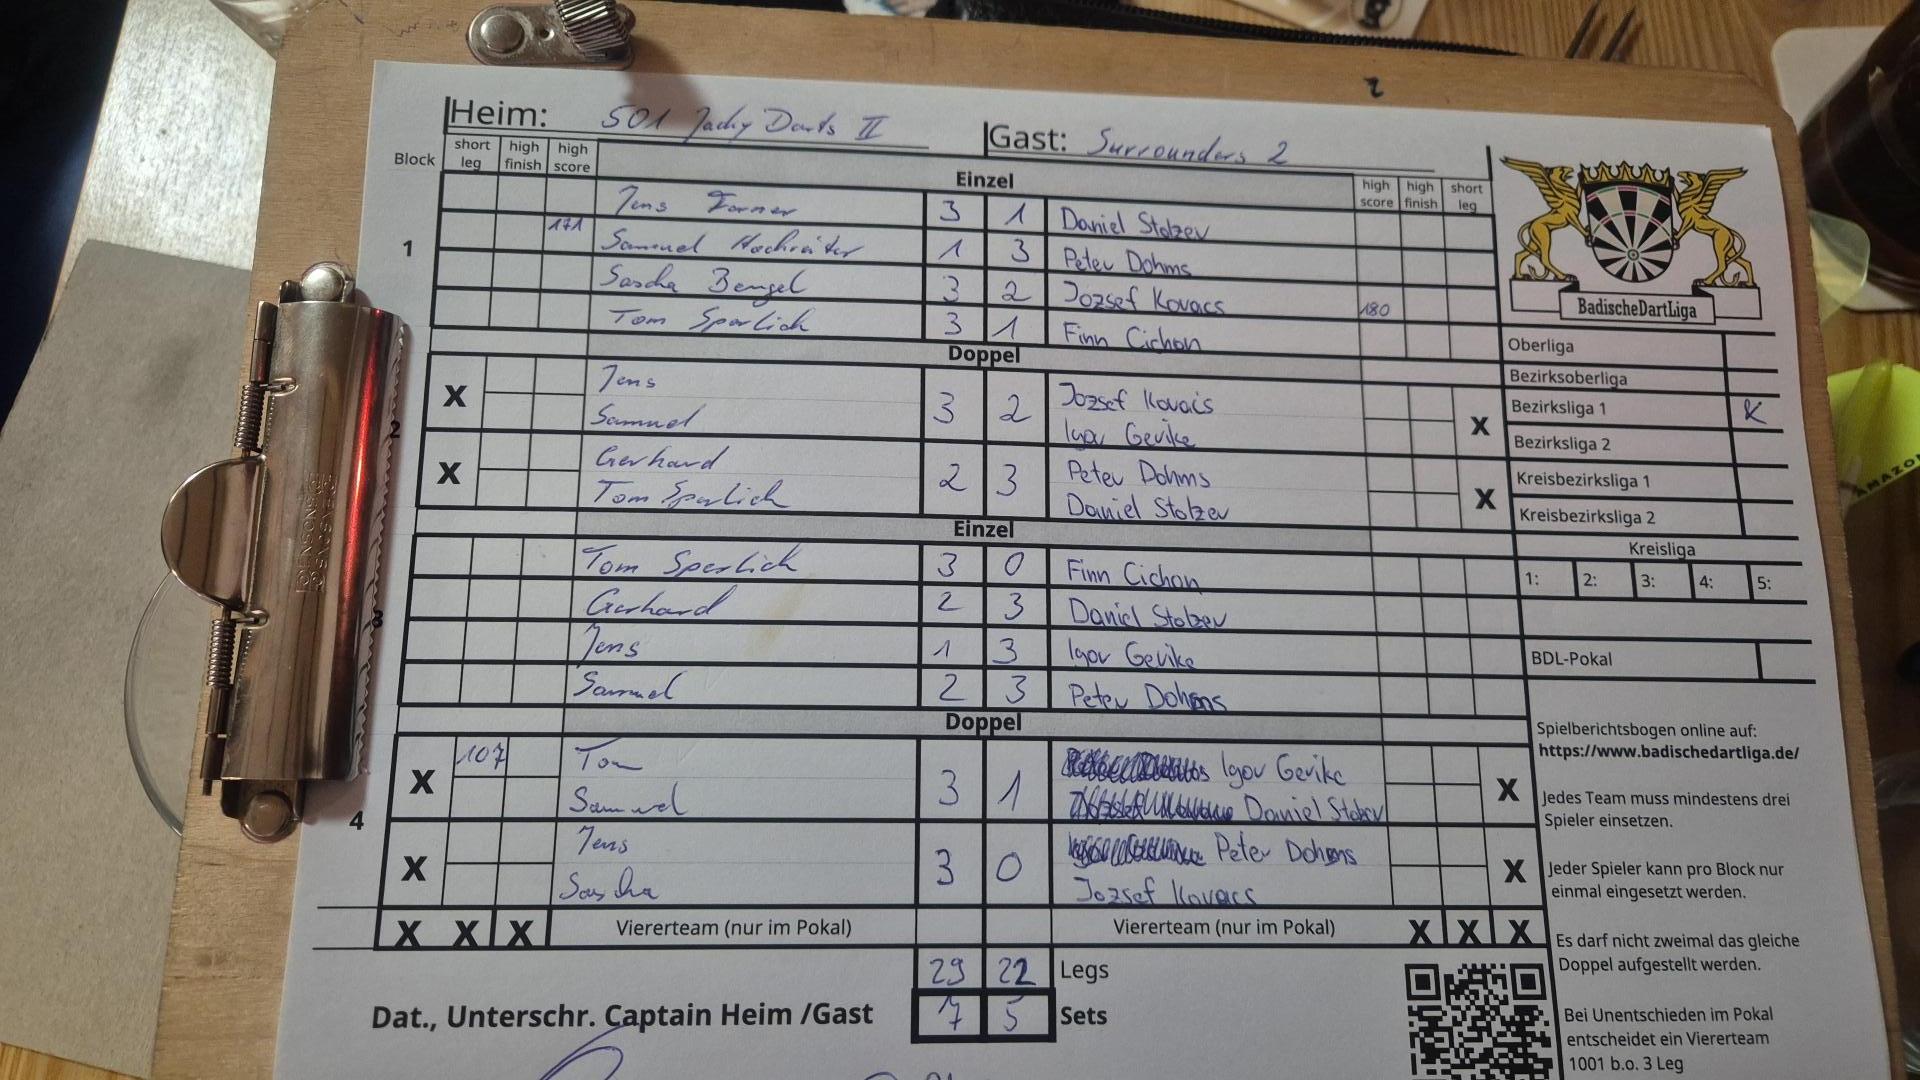 Heim: 501 Jacky Darts II
Gast: Surrounders 2
Block short leg high finish high score Einzel high score high finish short leg
1
Jens Forner 3 1 Daniel Stolzer
171 Samuel Hochreiter 1 3 Peter Dohms
Sascha Bengel 3 2 Jozsef Kovacs 180
Tom Sperlich 3 1 Finn Cichon
Doppel
2
X Jens 3 2 Jozsef Kovacs X
Samuel Igor Gerike
X Gerhard 2 3 Peter Dohms X
Tom Sperlich Daniel Stolzer
Einzel
3
Tom Sperlich 3 0 Finn Cichon
Gerhard 2 3 Daniel Stolzer
Jens 1 3 Igor Gerike
Samuel 2 3 Peter Dohms
Doppel
4
X 107 Tom 3 1 Igor Gerike X
Samuel Daniel Stolzer
X Jens 3 0 Peter Dohms X
Sascha Jozsef Kovacs
X X X Viererteam (nur im Pokal) Viererteam (nur im Pokal) X X X
29 22 Legs
Dat., Unterschr. Captain Heim /Gast 7 5 Sets
BadischeDartLiga
Oberliga
Bezirksoberliga
Bezirksliga 1 X
Bezirksliga 2
Kreisbezirksliga 1
Kreisbezirksliga 2
Kreisliga
1: 2: 3: 4: 5:
BDL-Pokal
Spielberichtsbogen online auf:
https://www.badischedartliga.de/
Jedes Team muss mindestens drei
Spieler einsetzen.
Jeder Spieler kann pro Block nur
einmal eingesetzt werden.
Es darf nicht zweimal das gleiche
Doppel aufgestellt werden.
Bei Unentschieden im Pokal
entscheidet ein Viererteam
1001 b.o. 3 Leg
AMAZON